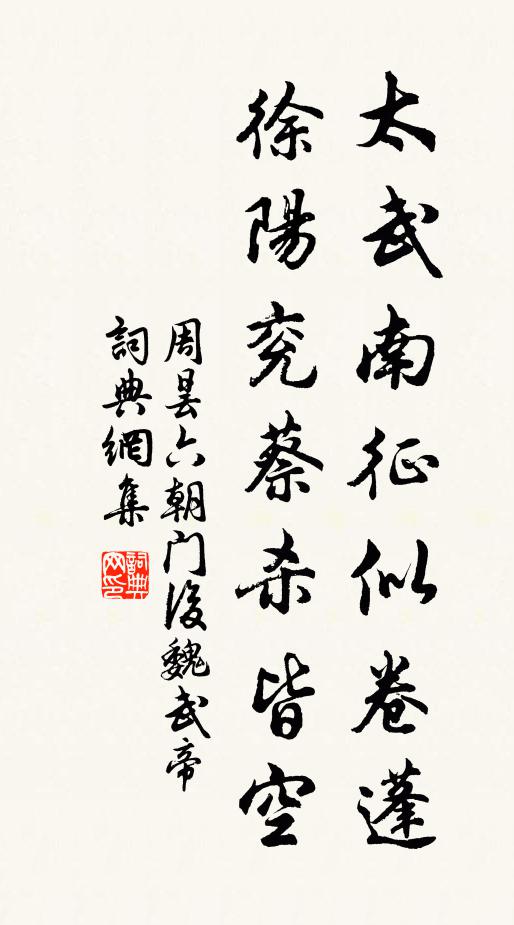 太武南征似卷蓬
徐陽兖蔡杀皆空
周曇六朝门後魏武帝
詞典網集
詞典网印